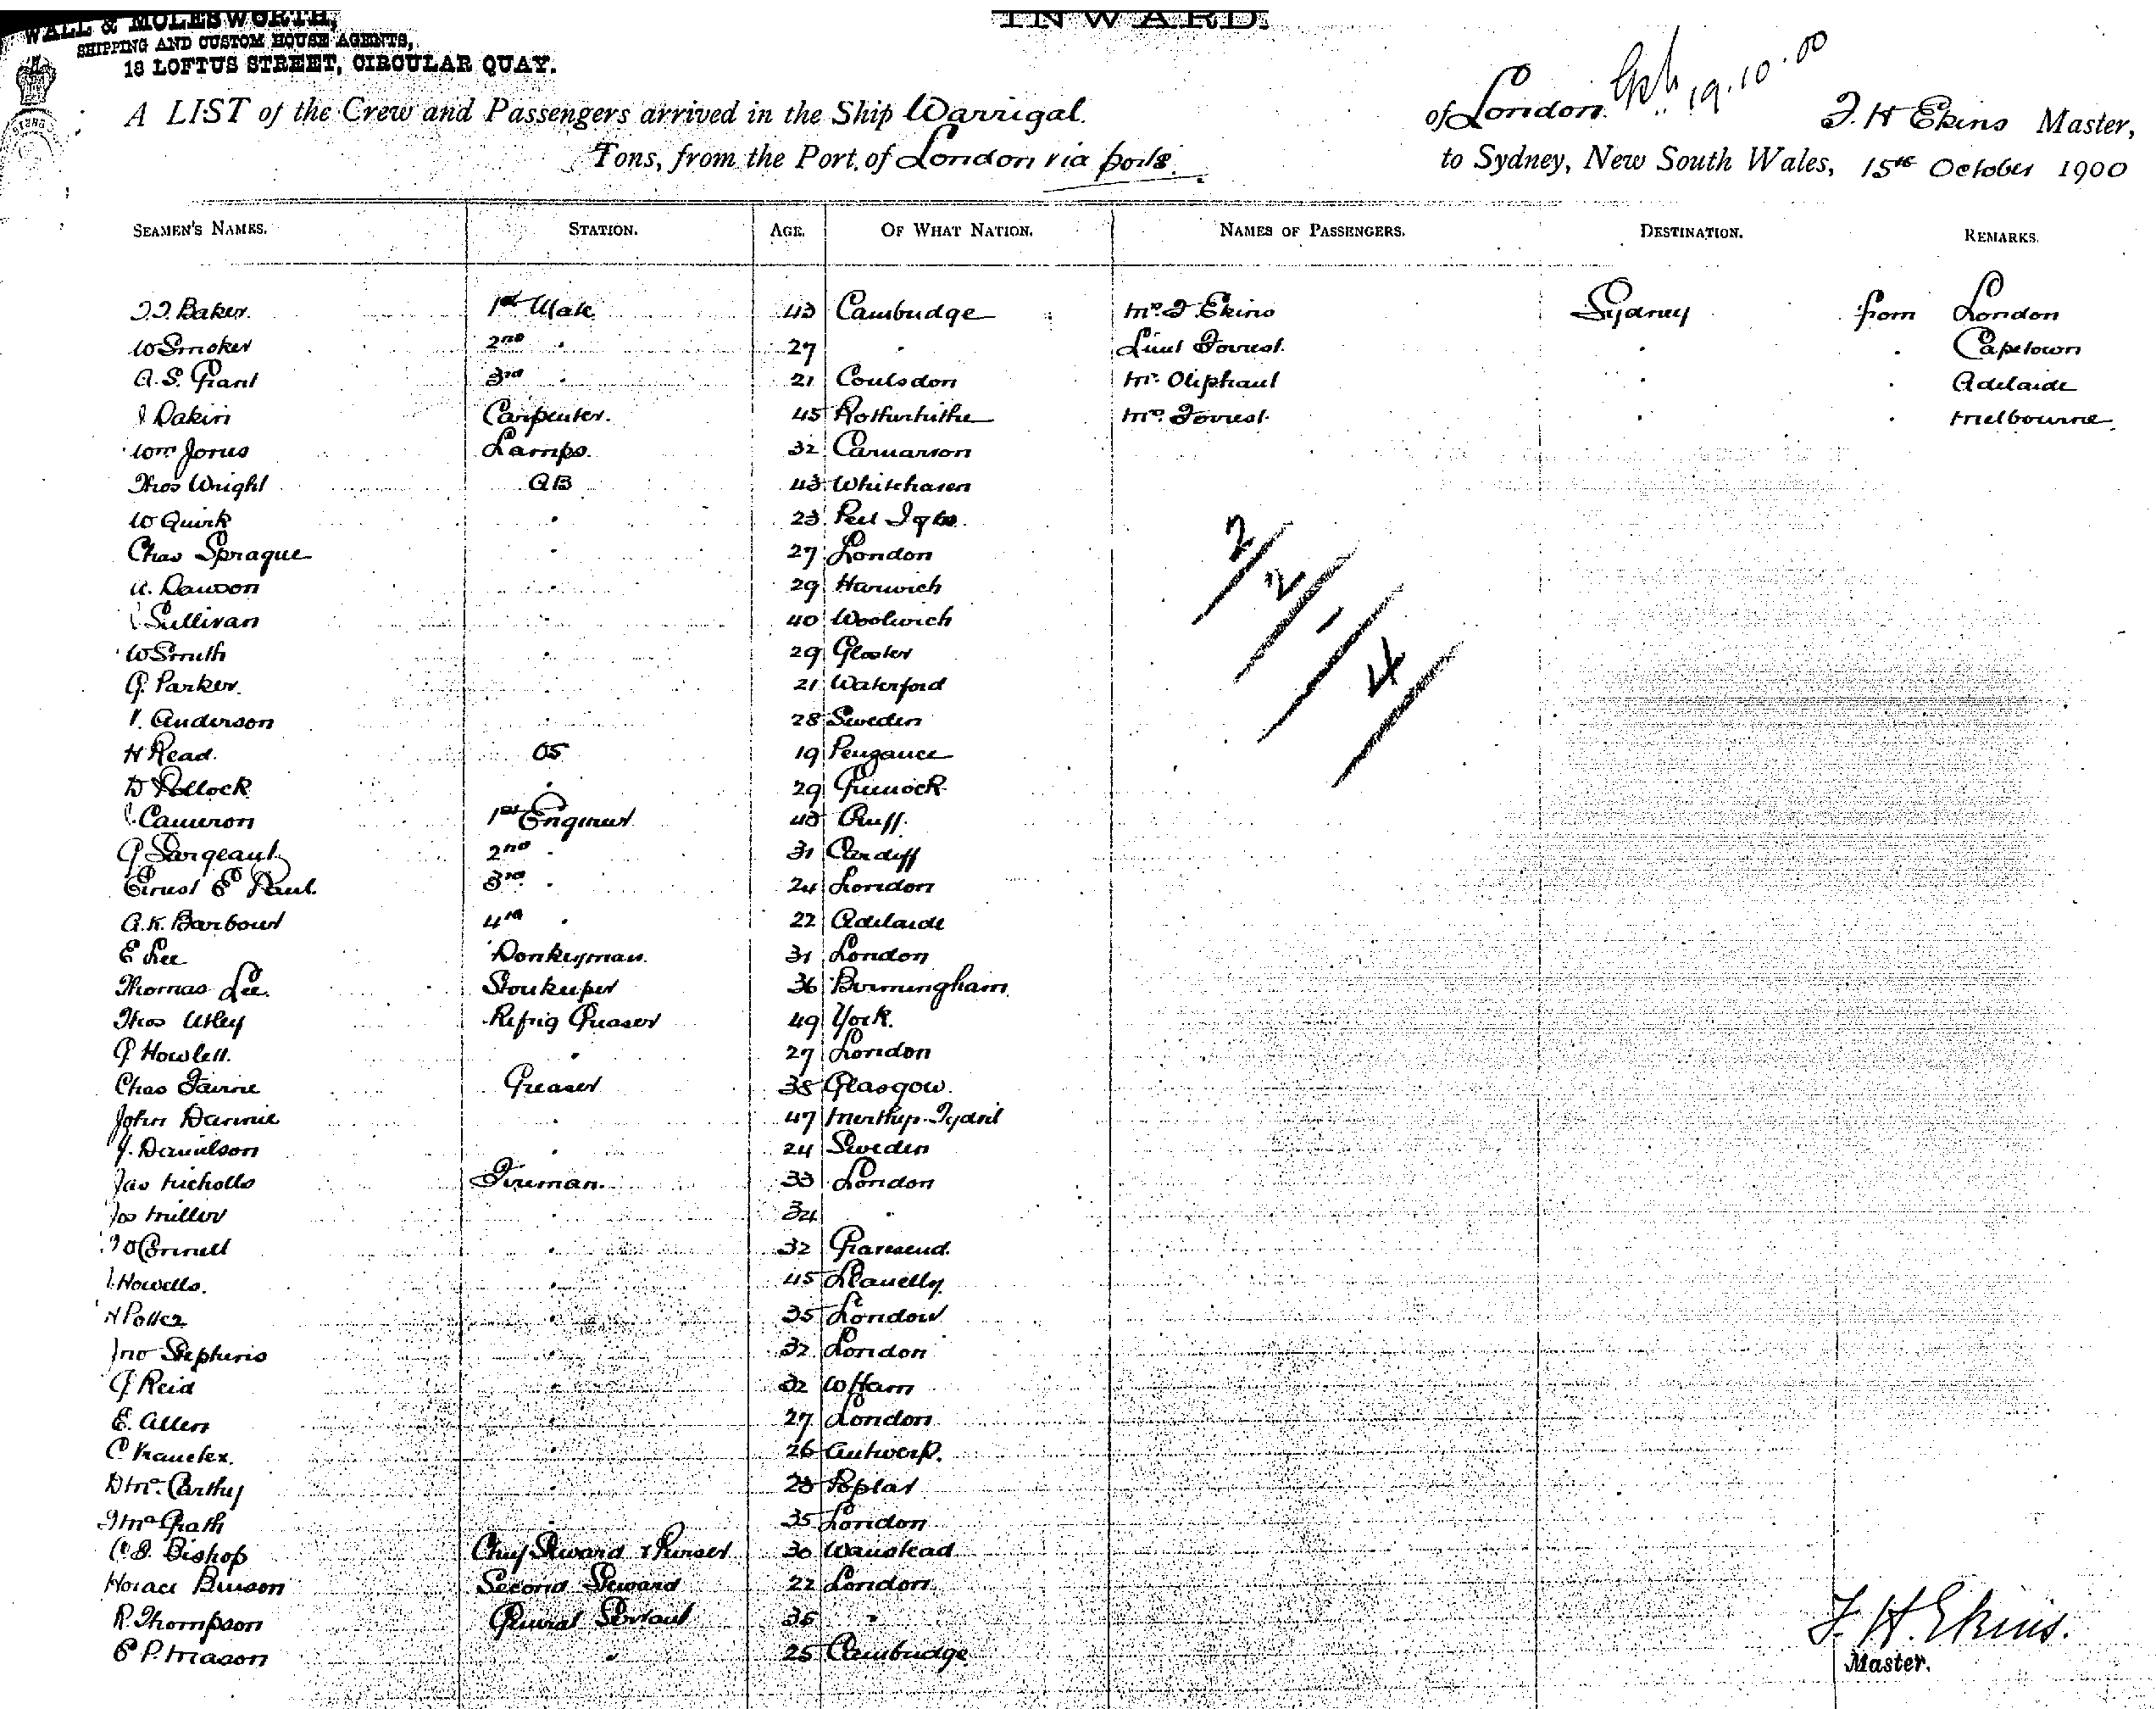 WALL & MOLESWORTH,
SHIPPING AND CUSTOM HOUSE AGENTS,
18 LOFTUS STREET, CIRCULAR QUAY.
INWARD.
A LIST of the Crew and Passengers arrived in the Ship Warrigal. of London. 19.10.00 F. H Ekins Master,
Tons, from the Port of London via ports. to Sydney, New South Wales, 15th October 1900
SEAMEN'S NAMES. STATION. AGE. OF WHAT NATION. NAMES OF PASSENGERS. DESTINATION. REMARKS.
Baker. 1st Mate 43 Cambridge Ekins Sydney from London
W Smoker 2nd " 27 " Lieut Forrest. " " Capetown
A. S. Grant 3rd " 21 Coulsdon Mr. Oliphant " " Adelaide
J Dakin Carpenter. 45 Rotherhithe Forrest. " " Melbourne.
Wm Jones Lamps. 32 Carnarvon
Thos Wright AB 43 Whitehaven
W Quirk " 23 Peel I of Man
Chas Sprague " 27 London
A. Dawson " 29 Harwich
J Sullivan " 40 Woolwich
W Smith " 29 Gloster
G. Parker. " 21 Waterford
Anderson " 28 Sweden
H Read. OS 19 Penzance
D Pollock " 29 Greenock
J. Cameron 1st Engineer 43
G Sargeant 2nd " 31 Cardiff
Ernest E Paul. 3rd " 24 London
A. K. Barbour 4th " 22 Adelaide
E Lee Donkeyman. 31 London
Thomas Lee. Storekeeper 36 Birmingham
Thos Utley Refrig Greaser 49 York.
G Howlett. " 27 London
Chas Greaser 38 Glasgow.
John " 47 Merthyr-Tydvil
J. Danielson " 24 Sweden
Jas Nicholls Fireman. 33 London
Jos Miller " 34 "
O'Connell " 32 Gravesend.
J. Howells. " 45 Llanelly
H Potter " 35 London
Jno Stephens " 32 London
G Reid " 32 W Ham
E. Allen " 27 London
C " 26 Antwerp.
D McCarthy " 23 Poplar
McGrath " 35 London
C. B. Bishop Chief Steward & Purser 30 Wanstead
Horace Benson Second Steward 22 London
R. Thompson General Servant 36 "
E P. Mason " 25 Cambridge
2/
2/
-/
4/
F. H. Ekins.
Master.